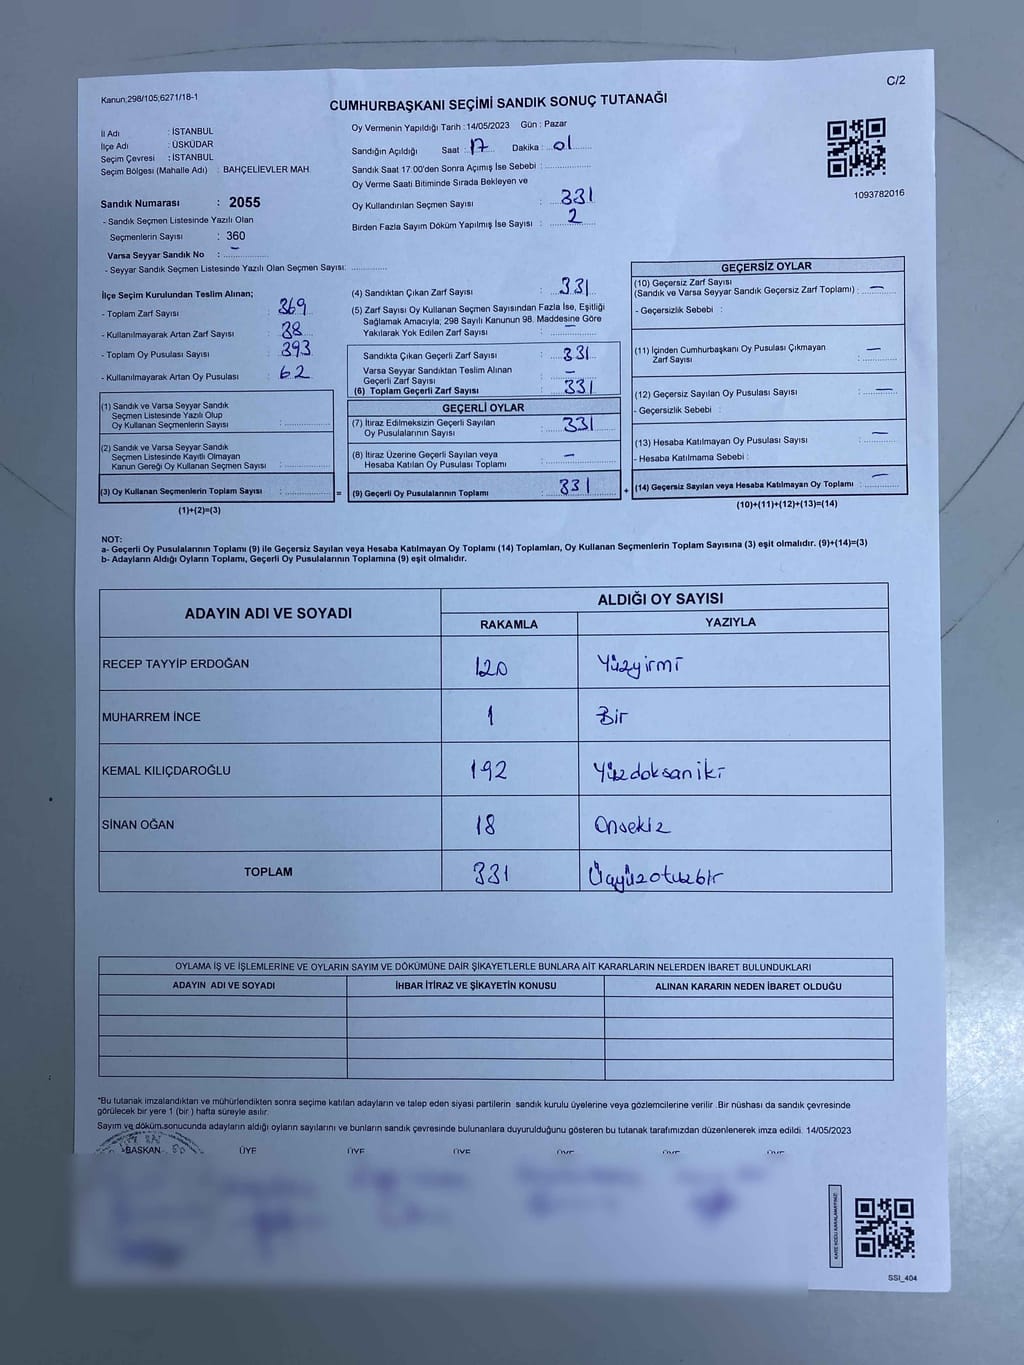 C/2
Kanun;298/105;6271/18-1
CUMHURBAŞKANI SEÇİMİ SANDIK SONUÇ TUTANAĞI
İl Adı : İSTANBUL
İlçe Adı : ÜSKÜDAR
Seçim Çevresi : İSTANBUL
Seçim Bölgesi (Mahalle Adı) : BAHÇELİEVLER MAH.
Sandık Numarası : 2055
- Sandık Seçmen Listesinde Yazılı Olan
Seçmenlerin Sayısı : 360
Varsa Seyyar Sandık No : –
- Seyyar Sandık Seçmen Listesinde Yazılı Olan Seçmen Sayısı:
Oy Vermenin Yapıldığı Tarih :14/05/2023 Gün : Pazar
Sandığın Açıldığı Saat : 17 Dakika : 01
Sandık Saat 17.00'den Sonra Açımış İse Sebebi :
Oy Verme Saati Bitiminde Sırada Bekleyen ve
Oy Kullandırılan Seçmen Sayısı : 331
Birden Fazla Sayım Döküm Yapılmış İse Sayısı : 2
1093782016
İlçe Seçim Kurulundan Teslim Alınan;
- Toplam Zarf Sayısı : 369
- Kullanılmayarak Artan Zarf Sayısı : 38
- Toplam Oy Pusulası Sayısı : 393
- Kullanılmayarak Artan Oy Pusulası : 62
(1) Sandık ve Varsa Seyyar Sandık
Seçmen Listesinde Yazılı Olup
Oy Kullanan Seçmenlerin Sayısı :
(2) Sandık ve Varsa Seyyar Sandık
Seçmen Listesinde Kayıtlı Olmayan
Kanun Gereği Oy Kullanan Seçmen Sayısı :
(3) Oy Kullanan Seçmenlerin Toplam Sayısı : =
(1)+(2)=(3)
(4) Sandıktan Çıkan Zarf Sayısı : 331
(5) Zarf Sayısı Oy Kullanan Seçmen Sayısından Fazla İse, Eşitliği
Sağlamak Amacıyla; 298 Sayılı Kanunun 98. Maddesine Göre
Yakılarak Yok Edilen Zarf Sayısı : –
Sandıkta Çıkan Geçerli Zarf Sayısı : 331
Varsa Seyyar Sandıktan Teslim Alınan
Geçerli Zarf Sayısı : –
(6) Toplam Geçerli Zarf Sayısı : 331
GEÇERLİ OYLAR
(7) İtiraz Edilmeksizin Geçerli Sayılan
Oy Pusulalarının Sayısı : 331
(8) İtiraz Üzerine Geçerli Sayılan veya
Hesaba Katılan Oy Pusulası Toplamı : –
(9) Geçerli Oy Pusulalarının Toplamı : 331 +
GEÇERSİZ OYLAR
(10) Geçersiz Zarf Sayısı
(Sandık ve Varsa Seyyar Sandık Geçersiz Zarf Toplamı) : –
- Geçersizlik Sebebi :
(11) İçinden Cumhurbaşkanı Oy Pusulası Çıkmayan
Zarf Sayısı : –
(12) Geçersiz Sayılan Oy Pusulası Sayısı : –
- Geçersizlik Sebebi :
(13) Hesaba Katılmayan Oy Pusulası Sayısı : –
- Hesaba Katılmama Sebebi :
(14) Geçersiz Sayılan veya Hesaba Katılmayan Oy Toplamı : –
(10)+(11)+(12)+(13)=(14)
NOT:
a- Geçerli Oy Pusulalarının Toplamı (9) ile Geçersiz Sayılan veya Hesaba Katılmayan Oy Toplamı (14) Toplamları, Oy Kullanan Seçmenlerin Toplam Sayısına (3) eşit olmalıdır. (9)+(14)=(3)
b- Adayların Aldığı Oyların Toplamı, Geçerli Oy Pusulalarının Toplamına (9) eşit olmalıdır.
ADAYIN ADI VE SOYADI
ALDIĞI OY SAYISI
RAKAMLA YAZIYLA
RECEP TAYYİP ERDOĞAN 120 Yüzyirmi
MUHARREM İNCE 1 Bir
KEMAL KILIÇDAROĞLU 192 Yüzdoksaniki
SİNAN OĞAN 18 Onsekiz
TOPLAM 331 Üçyüzotuzbir
OYLAMA İŞ VE İŞLEMLERİNE VE OYLARIN SAYIM VE DÖKÜMÜNE DAİR ŞİKAYETLERLE BUNLARA AİT KARARLARIN NELERDEN İBARET BULUNDUKLARI
ADAYIN ADI VE SOYADI İHBAR İTİRAZ VE ŞİKAYETİN KONUSU ALINAN KARARIN NEDEN İBARET OLDUĞU
*Bu tutanak imzalandıktan ve mühürlendikten sonra seçime katılan adayların ve talep eden siyasi partilerin sandık kurulu üyelerine veya gözlemcilerine verilir .Bir nüshası da sandık çevresinde
görülecek bir yere 1 (bir ) hafta süreyle asılır.
Sayım ve döküm sonucunda adayların aldığı oyların sayılarını ve bunların sandık çevresinde bulunanlara duyurulduğunu gösteren bu tutanak tarafımızdan düzenlenerek imza edildi. 14/05/2023
BAŞKAN ÜYE ÜYE ÜYE ÜYE ÜYE ÜYE
KARE KODU KARALAMAYINIZ!
SSİ_404